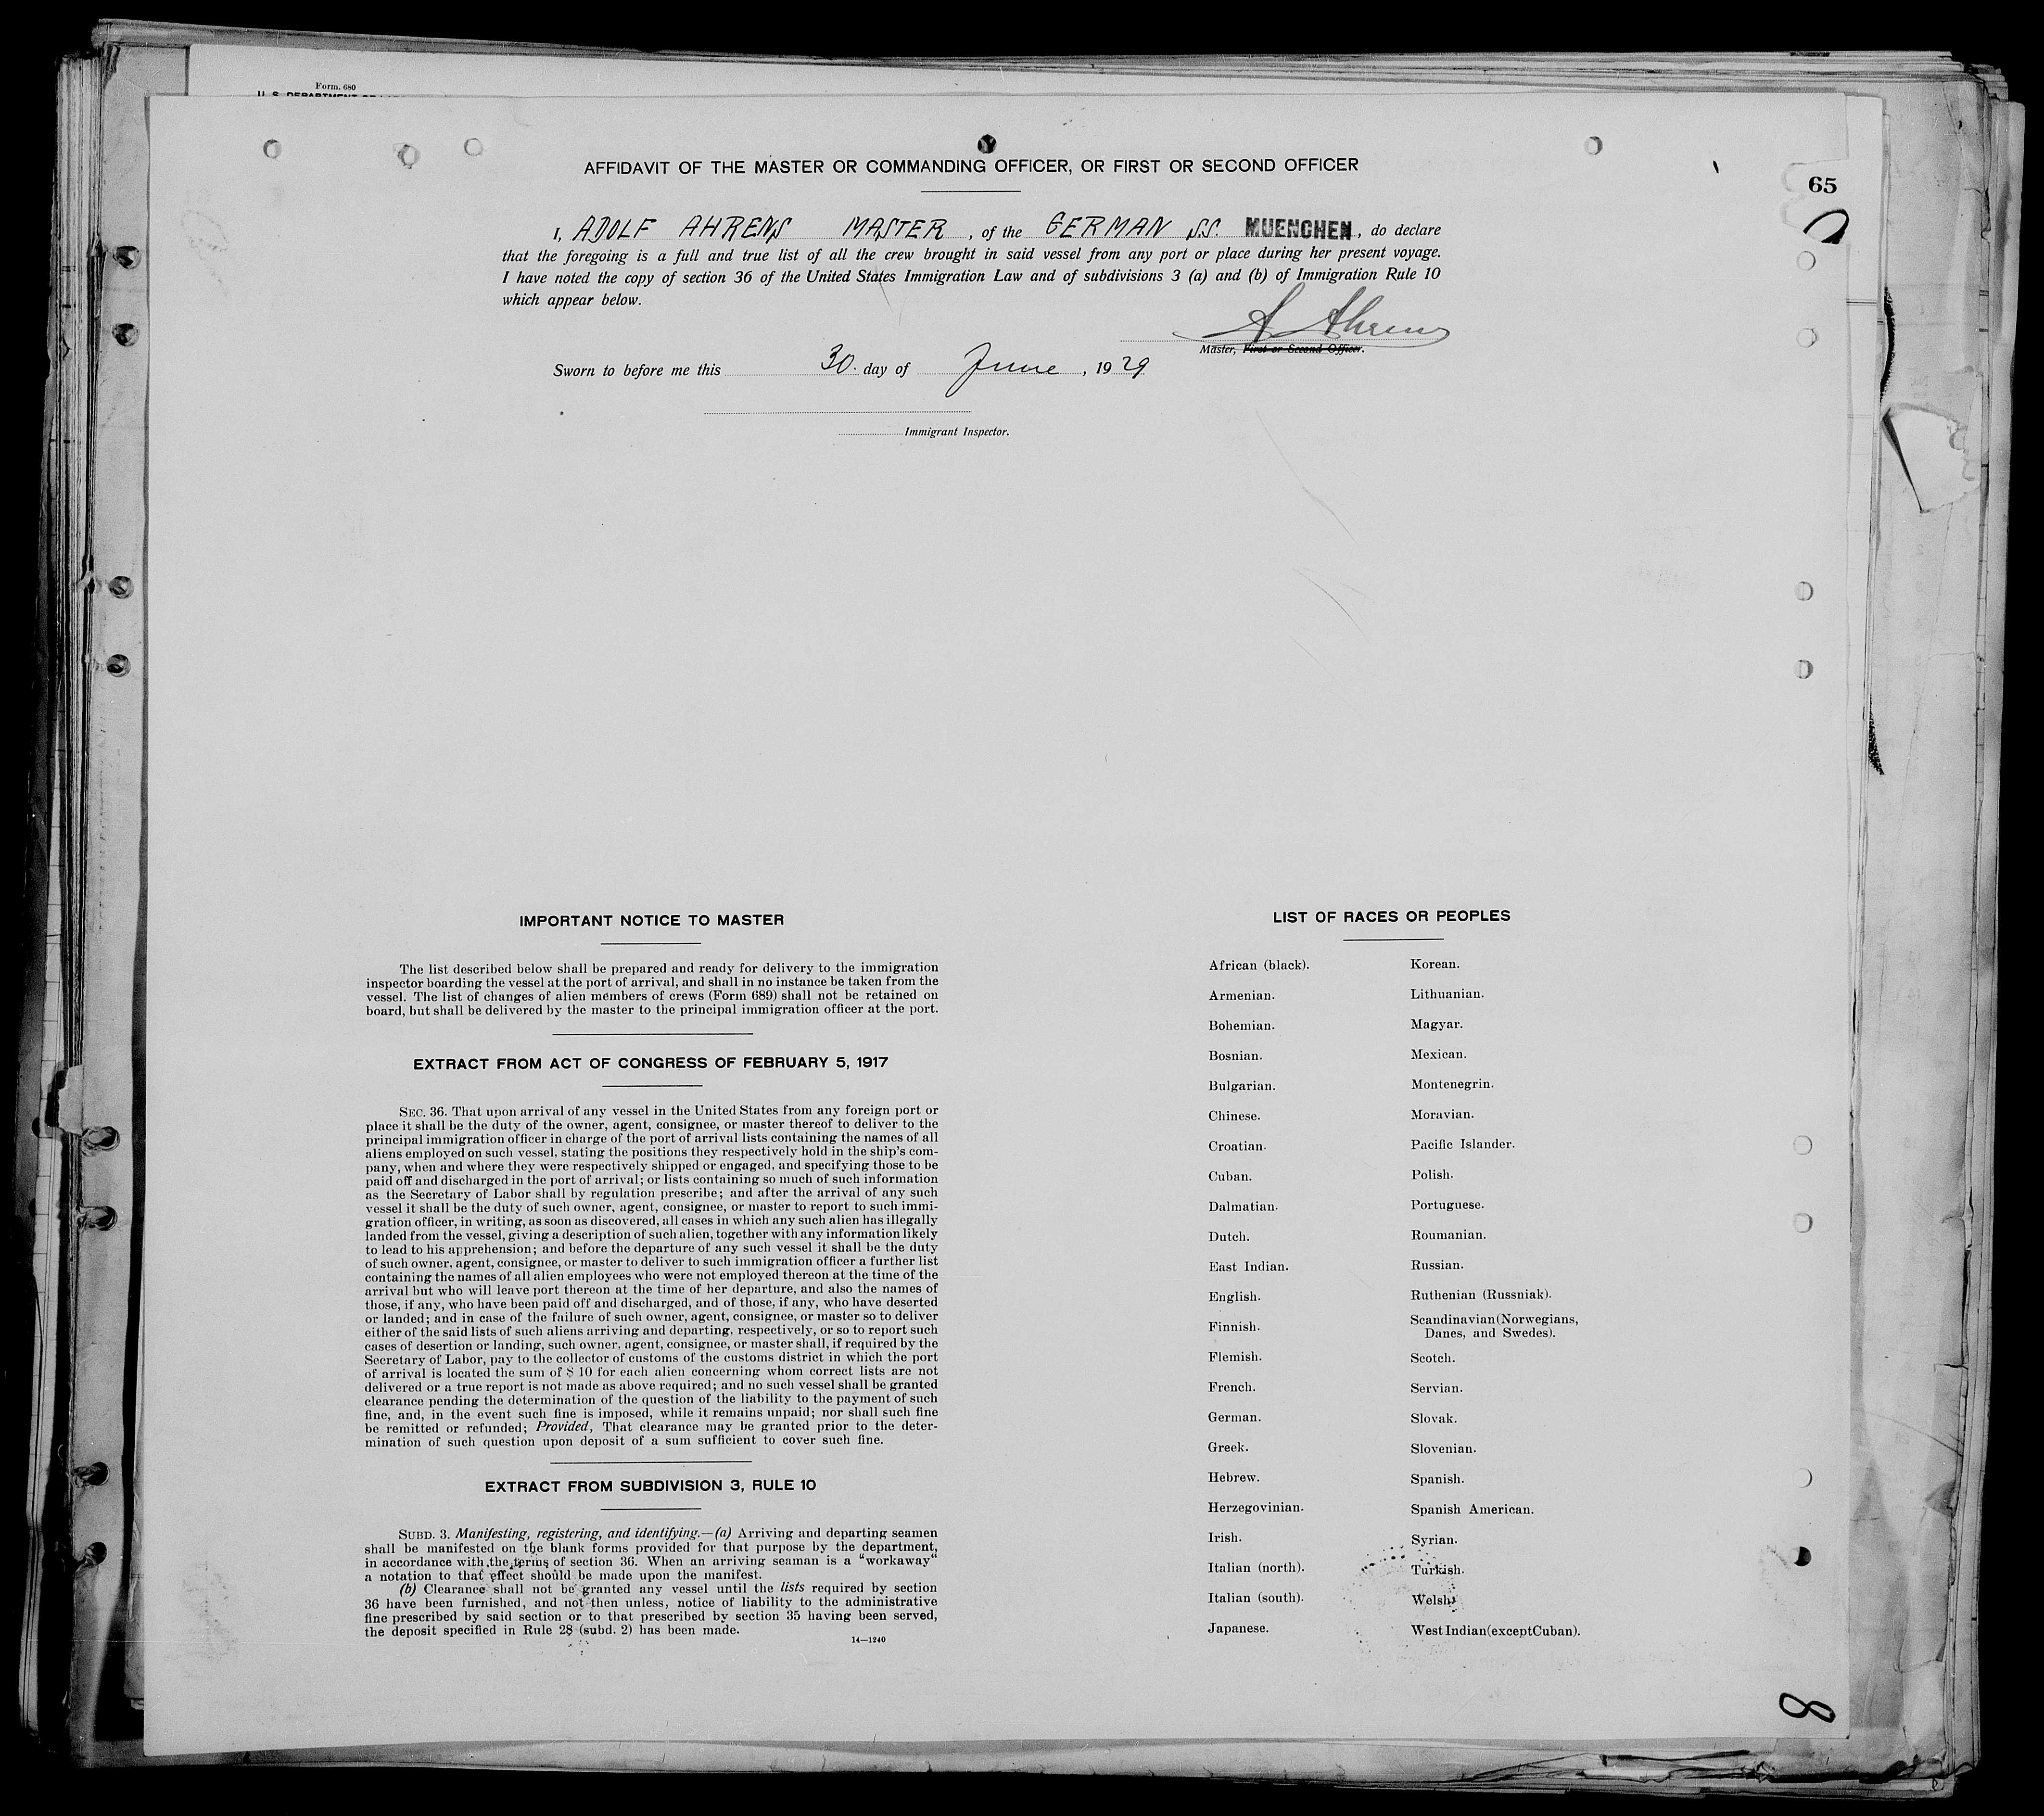 Form. 680
AFFIDAVIT OF THE MASTER OR COMMANDING OFFICER, OR FIRST OR SECOND OFFICER
65
I, ADOLF AHRENS MASTER, of the GERMAN S.S. MUENCHEN, do declare
that the foregoing is a full and true list of all the crew brought in said vessel from any port or place during her present voyage.
I have noted the copy of section 36 of the United States Immigration Law and of subdivisions 3 (a) and (b) of Immigration Rule 10
which appear below.
A Ahrens
Master, First or Second Officer.
Sworn to before me this 30. day of June, 1929
Immigrant Inspector.
IMPORTANT NOTICE TO MASTER
The list described below shall be prepared and ready for delivery to the immigration
inspector boarding the vessel at the port of arrival, and shall in no instance be taken from the
vessel. The list of changes of alien members of crews (Form 689) shall not be retained on
board, but shall be delivered by the master to the principal immigration officer at the port.
EXTRACT FROM ACT OF CONGRESS OF FEBRUARY 5, 1917
SEC. 36. That upon arrival of any vessel in the United States from any foreign port or
place it shall be the duty of the owner, agent, consignee, or master thereof to deliver to the
principal immigration officer in charge of the port of arrival lists containing the names of all
aliens employed on such vessel, stating the positions they respectively hold in the ship's com-
pany, when and where they were respectively shipped or engaged, and specifying those to be
paid off and discharged in the port of arrival; or lists containing so much of such information
as the Secretary of Labor shall by regulation prescribe; and after the arrival of any such
vessel it shall be the duty of such owner, agent, consignee, or master to report to such immi-
gration officer, in writing, as soon as discovered, all cases in which any such alien has illegally
landed from the vessel, giving a description of such alien, together with any information likely
to lead to his apprehension; and before the departure of any such vessel it shall be the duty
of such owner, agent, consignee, or master to deliver to such immigration officer a further list
containing the names of all alien employees who were not employed thereon at the time of the
arrival but who will leave port thereon at the time of her departure, and also the names of
those, if any, who have been paid off and discharged, and of those, if any, who have deserted
or landed; and in case of the failure of such owner, agent, consignee, or master so to deliver
either of the said lists of such aliens arriving and departing, respectively, or so to report such
cases of desertion or landing, such owner, agent, consignee, or master shall, if required by the
Secretary of Labor, pay to the collector of customs of the customs district in which the port
of arrival is located the sum of $ 10 for each alien concerning whom correct lists are not
delivered or a true report is not made as above required; and no such vessel shall be granted
clearance pending the determination of the question of the liability to the payment of such
fine, and, in the event such fine is imposed, while it remains unpaid; nor shall such fine
be remitted or refunded; Provided, That clearance may be granted prior to the deter-
mination of such question upon deposit of a sum sufficient to cover such fine.
EXTRACT FROM SUBDIVISION 3, RULE 10
SUBD. 3. Manifesting, registering, and identifying.—(a) Arriving and departing seamen
shall be manifested on the blank forms provided for that purpose by the department,
in accordance with the terms of section 36. When an arriving seaman is a "workaway"
a notation to that effect should be made upon the manifest.
(b) Clearance shall not be granted any vessel until the lists required by section
36 have been furnished, and not then unless, notice of liability to the administrative
fine prescribed by said section or to that prescribed by section 35 having been served,
the deposit specified in Rule 28 (subd. 2) has been made.
14—1240
LIST OF RACES OR PEOPLES
African (black).
Armenian.
Bohemian.
Bosnian.
Bulgarian.
Chinese.
Croatian.
Cuban.
Dalmatian.
Dutch.
East Indian.
English.
Finnish.
Flemish.
French.
German.
Greek.
Hebrew.
Herzegovinian.
Irish.
Italian (north).
Italian (south).
Japanese.
Korean.
Lithuanian.
Magyar.
Mexican.
Montenegrin.
Moravian.
Pacific Islander.
Polish.
Portuguese.
Roumanian.
Russian.
Ruthenian (Russniak).
Scandinavian (Norwegians,
Danes, and Swedes).
Scotch.
Servian.
Slovak.
Slovenian.
Spanish.
Spanish American.
Syrian.
Turkish.
Welsh.
West Indian (except Cuban).
8